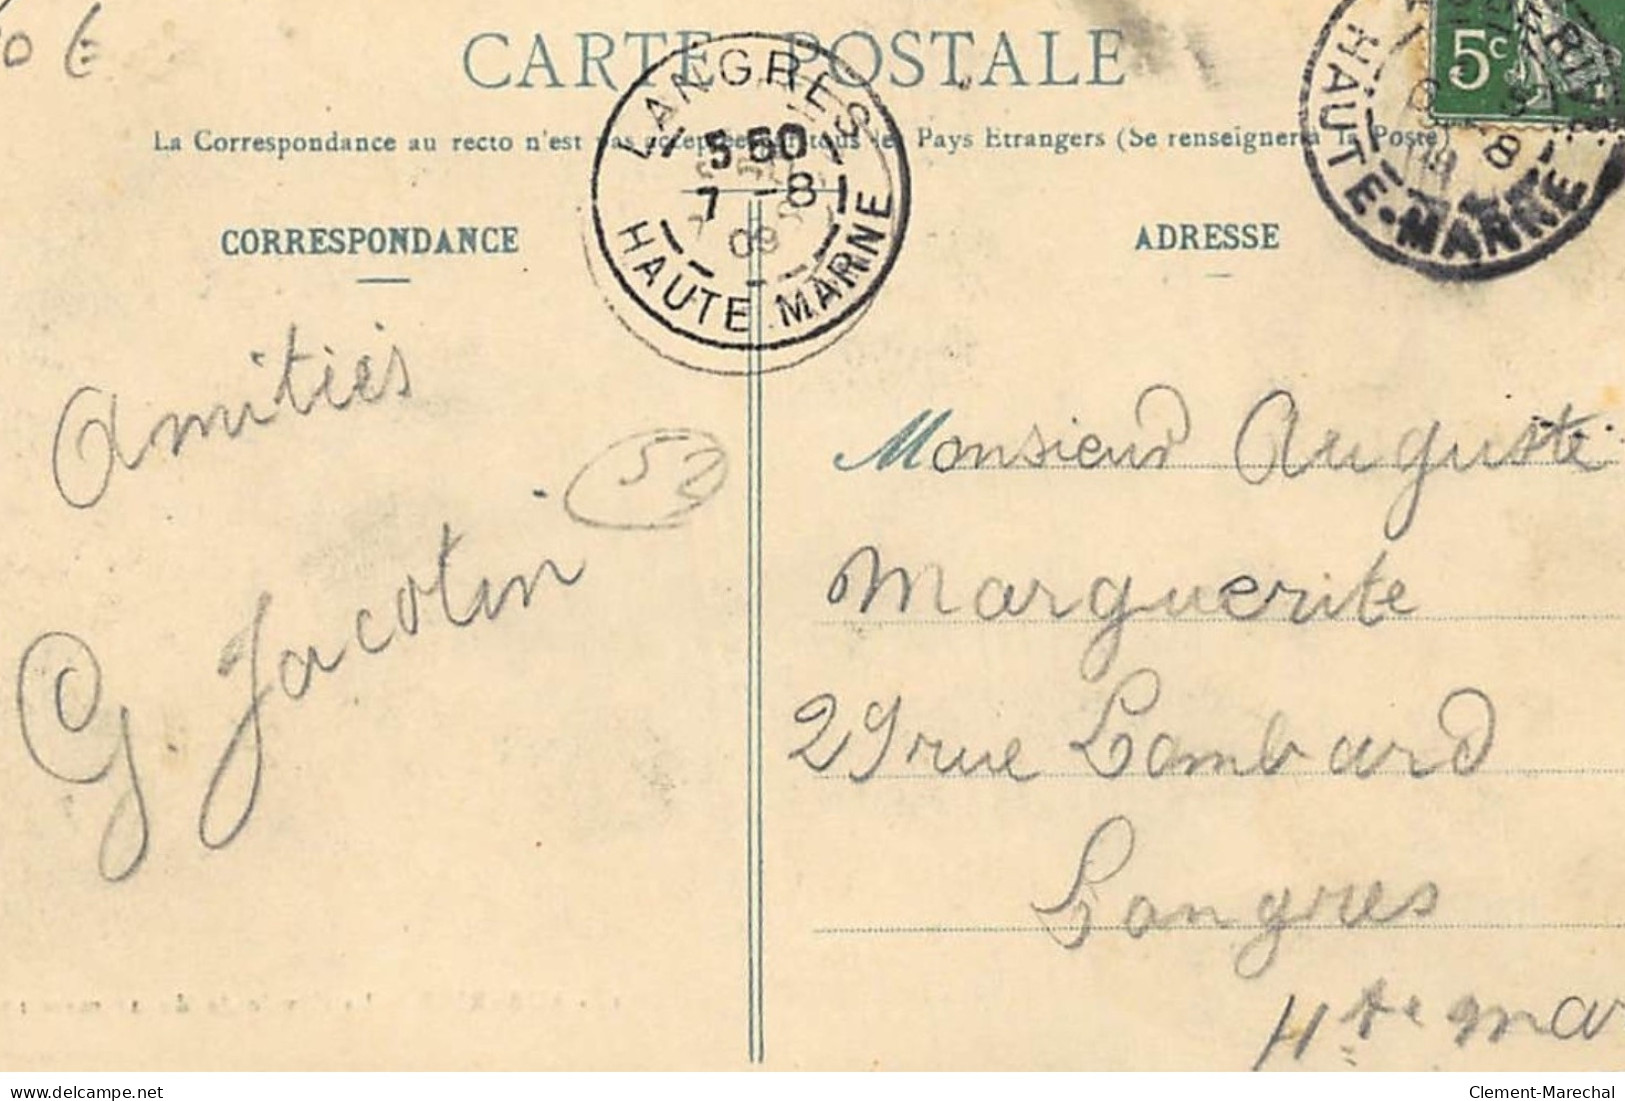 CARTE POSTALE
La Correspondance au recto n'est pas acceptée par tous les Pays Etrangers (Se renseigner à la Poste)
LANGRES
5 50
7 -8
09
HAUTE MARNE
5c
HAUTE-MARNE
CORRESPONDANCE
Amitiés
52
G. Jacotin
ADRESSE
Monsieur Auguste
Marguerite
29 rue Lombard
Langres
Hte Mar
delcampe.net
Clement-Marechal